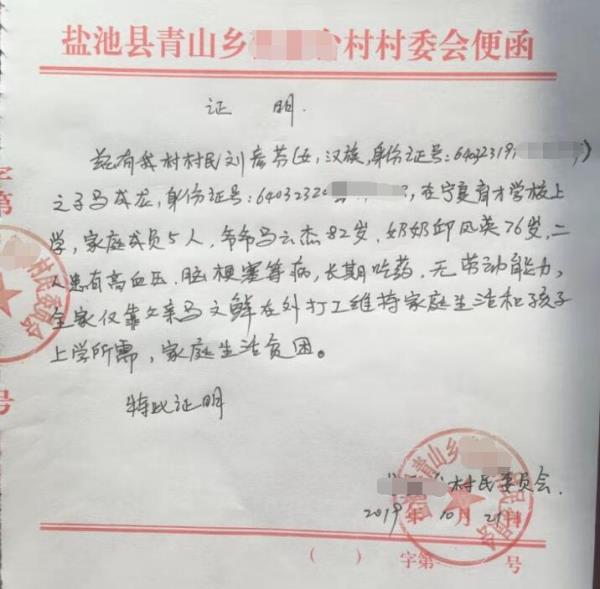 盐池县青山乡 村村委会便函
证 明.
兹有我村村民刘彦芳(女,汉族,身份证号:64032319 )
之子马成龙,身份证号:6403232 ,在宁夏育才学校上
学,家庭成员5人,爷爷马云杰82岁,奶奶邱凤英76岁,二
人患有高血压、脑梗塞等病,长期吃药,无劳动能力,
全家仅靠父亲马文鲜在外打工维持家庭生活和孩子
上学所需,家庭生活贫困。
特此证明
村民委员会.
2019年10月21日
( ) 字第 号
字第
号
村民委员会
青山乡